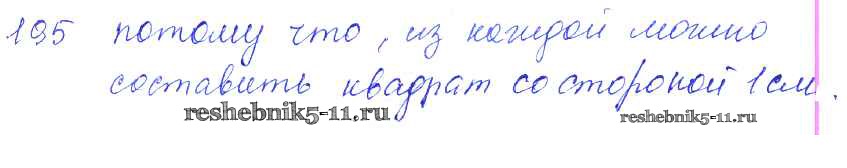 195 потому что, из каждой можно
составить квадрат со стороной 1 см.
reshebnik5-11.ru
reshebnik5-11.ru